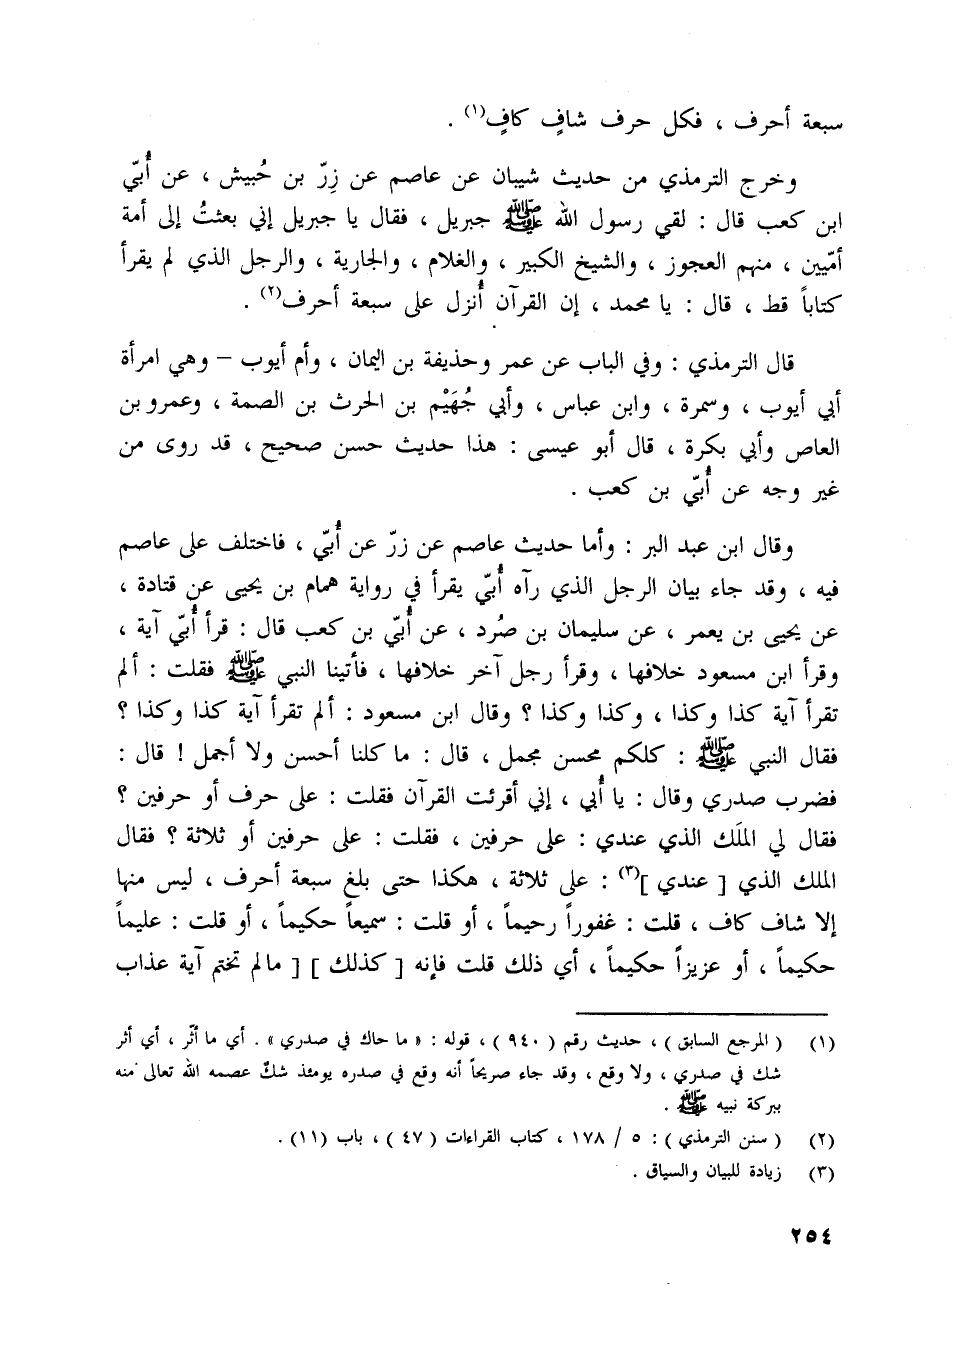 سبعة أحرف ، فكل حرف شافٍ كافٍ(١) .
وخرج الترمذي من حديث شيبان عن عاصم عن زِرّ بن حُبيش ، عن أُبيّ
ابن كعب قال : لقي رسول الله ﷺ جبريل ، فقال يا جبريل إني بعثتُ إلى أمة
أمّيين ، منهم العجوز ، والشيخ الكبير ، والغلام ، والجارية ، والرجل الذي لم يقرأ
كتاباً قط ، قال : يا محمد ، إن القرآن أُنزل على سبعة أحرف(٢) .
قال الترمذي : وفي الباب عن عمر وحذيفة بن اليمان ، وأم أيوب – وهي امرأة
أبي أيوب ، وسمرة ، وابن عباس ، وأبي جُهَيْم بن الحرث بن الصمة ، وعمرو بن
العاص وأبي بكرة ، قال أبو عيسى : هذا حديث حسن صحيح ، قد روى من
غير وجه عن أُبيّ بن كعب .
وقال ابن عبد البر : وأما حديث عاصم عن زرّ عن أُبيّ ، فاختلف على عاصم
فيه ، وقد جاء بيان الرجل الذي رآه أُبيّ يقرأ في رواية همام بن يحيى عن قتادة ،
عن يحيى بن يعمر ، عن سليمان بن صُرد ، عن أُبيّ بن كعب قال : قرأ أُبيّ آية ،
وقرأ ابن مسعود خلافها ، وقرأ رجل آخر خلافها ، فأتينا النبي ﷺ فقلت : ألم
تقرأ آية كذا وكذا ، وكذا وكذا ؟ وقال ابن مسعود : ألم تقرأ آية كذا وكذا ؟
فقال النبي ﷺ : كلكم محسن مجمل ، قال : ما كلنا أحسن ولا أجمل ! قال :
فضرب صدري وقال : يا أُبي ، إني أقرئت القرآن فقلت : على حرف أو حرفين ؟
فقال لي الملَك الذي عندي : على حرفين ، فقلت : على حرفين أو ثلاثة ؟ فقال
الملك الذي [ عندي ](٣) : على ثلاثة ، هكذا حتى بلغ سبعة أحرف ، ليس منها
إلا شاف كاف ، قلت : غفوراً رحيماً ، أو قلت : سميعاً حكيماً ، أو قلت : عليماً
حكيماً ، أو عزيزاً حكيماً ، أي ذلك قلت فإنه [ كذلك ] [ مالم تختم آية عذاب
(١) ( المرجع السابق ) ، حديث رقم ( ٩٤٠ ) ، قوله : « ما حاك في صدري » . أي ما أثّر ، أي أثر
شك في صدري ، ولا وقع ، وقد جاء صريحاً أنه وقع في صدره يومئذ شكٌ عصمه الله تعالى منه
ببركة نبيه ﷺ .
(٢) ( سنن الترمذي ) : ٥ / ١٧٨ ، كتاب القراءات ( ٤٧ ) ، باب (١١) .
(٣) زيادة للبيان والسياق .
٢٥٤